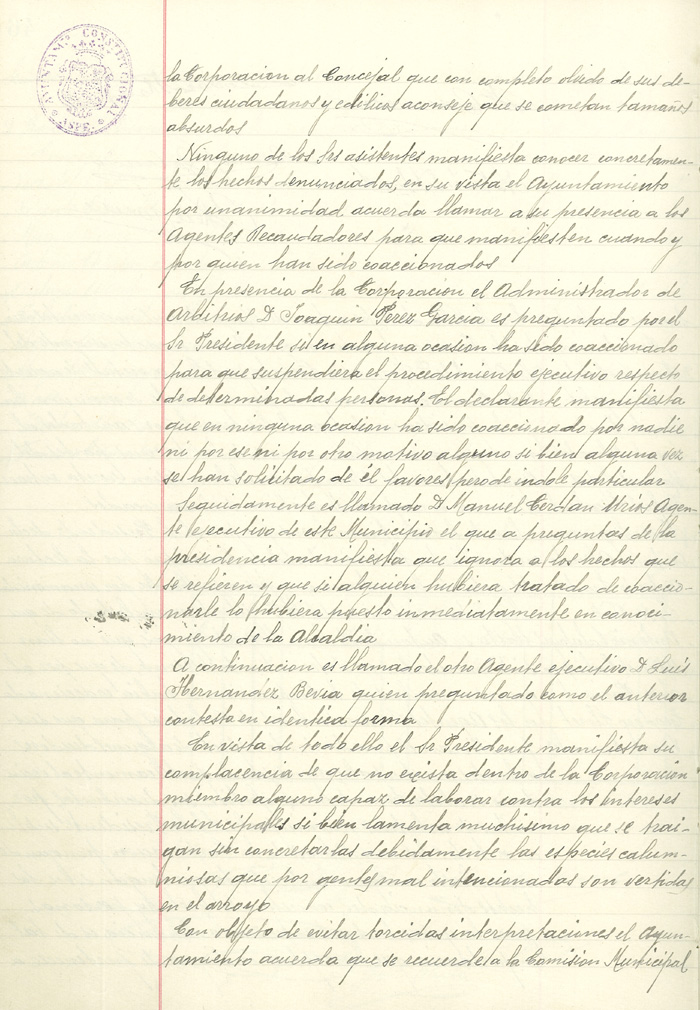 AYUNTAMTO CONSTITUCIONAL
ASPE
la Corporacion al Concejal que con completo olvido de sus de-
beres ciudadanos y edilicios aconseje que se cometan tamaños
absurdos
Ninguno de los Srs asistentes manifiesta conocer concretamen-
te los hechos denunciados, en su vista el Ayuntamiento
por unanimidad acuerda llamar a su presencia a los
Agentes Recaudadores para que manifiesten cuando y
por quien han sido coaccionados
En presencia de la Corporacion el Administrador de
Arbitrios D Joaquin Perez Garcia es preguntado por el
Sr Presidente si en alguna ocasion ha sido coaccionado
para que suspendiera el procedimiento ejecutivo respecto
de determinadas personas. El declarante manifiesta
que en ninguna ocasion ha sido coaccionado por nadie
ni por ese ni por otro motivo alguno si bien alguna vez
se han solicitado de él favores pero de indole particular
Seguidamente es llamado D Manuel Cerdan Urios Agen-
te ejecutivo de este Municipio el que a preguntas de la
presidencia manifiesta que ignora a los hechos que
se refieren y que si alguien hubiera tratado de coaccio-
narle lo hubiera puesto inmediatamente en conoci-
miento de la Alcaldia
A continuacion es llamado el otro Agente ejecutivo D Luís
Hernandez Bevia quien preguntado como el anterior
contesta en identica forma
En vista de todo ello el Sr Presidente manifiesta su
complacencia de que no exista dentro de la Corporacion
miembro alguno capaz de laborar contra los intereses
municipales si bien lamenta muchisimo que se trai-
gan sin concretarlas debidamente las especies calum-
niosas que por gentes mal intencionadas son vertidas
en el arroyo
Con objeto de evitar torcidas interpretaciones el Ayun-
tamiento acuerda que se recuerde a la Comision Municipal